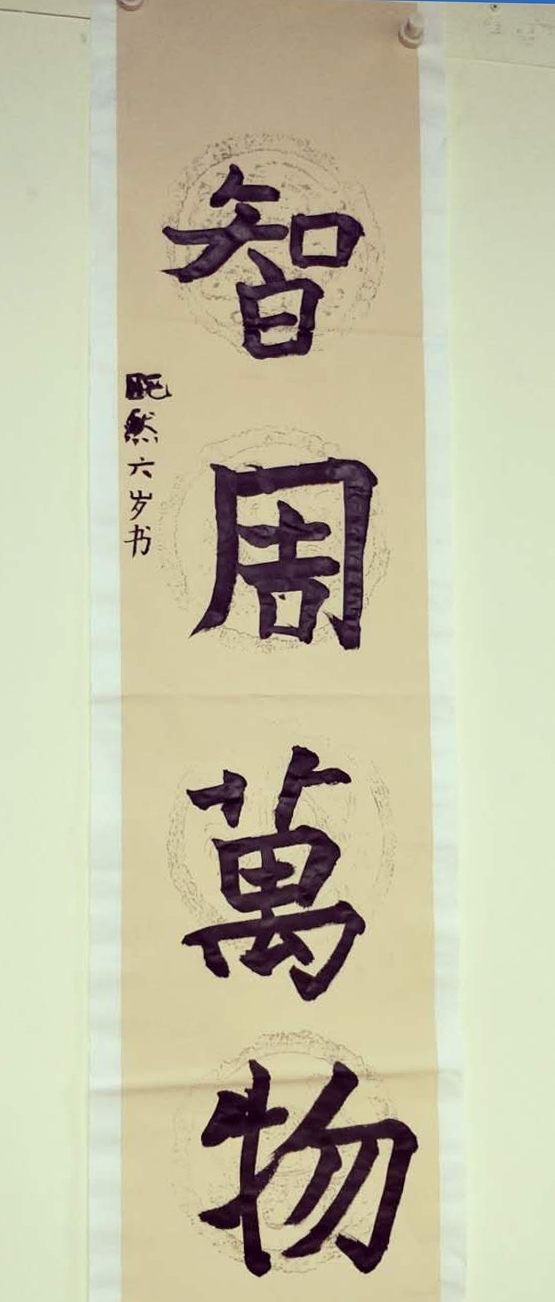 智周萬物
然六岁书